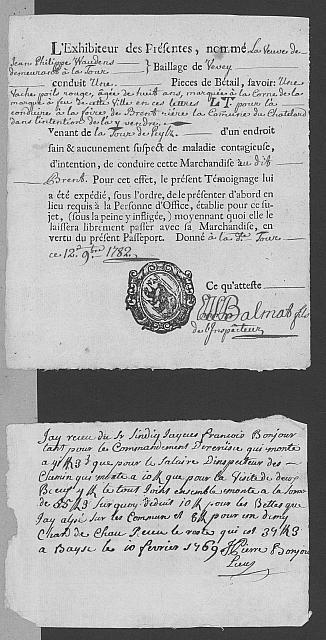 L'Exhibiteur des Présentes, nommé La veuve de
Jean Philippe Waudens
demeurant à la Tour } Baillage de Vevey
conduit Une Pieces de Bétail, savoir: Une
Vache poils rouge, âgée de huit ans, marquée à la Corne de la
marque à feu de cette Ville en ces lettres LT. pour la
conduire à la foire de Brent riere la Comune du Chatelard
dans l'intention de la y vendre.
Venant de la Tour de Peylz d'un endroit
sain & aucunement suspect de maladie contagieuse,
d'intention, de conduire cette Marchandise au dit
Brent. Pour cet effet, le présent Témoignage lui
a été expédié, sous l'ordre, de le présenter d'abord en
lieu requis à la Personne d'Office, établie pour ce su-
jet, (sous la peine y infligée,) moyennant quoi elle le
laissera librement passer avec sa Marchandise, en
vertu du présent Passeport. Donné à la dte Tour
ce 12e 9bre 1782.
Ce qu'atteste
Balmat fils
de l'Inspecteur
Jay receu du Sr Sindiq Jaques francois Bonjour
tant pour les Commandement qui monte
a 41 que pour le Salaire Dinspecteur des
Chemin qui monte a 10 que pour la Visite de deux
Bœuf le tout Joint ensemble monte a la Somme
de 55 Surquoy deduit 10 pour les Bettes que
Jay sur les Communs et pour un demy
Chard de Chau Receu le reste qui est 37
a Bayse le 10 fevrier 1769 Pierre Bonjour